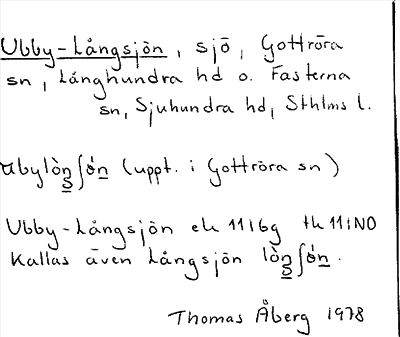 Ubby-Långsjön, sjö, Gottröra
sn, Långhundra hd o. Fasterna
sn, Sjuhundra hd, Sthlms l.
ʉbylò̀n̲ʃö́n̲ (uppt. i Gottröra sn)
Ubby-Långsjön ek 11I6g tk 11INO
Kallas även Långsjön lò̀n̲ʃö́n̲.
Thomas Åberg 1978